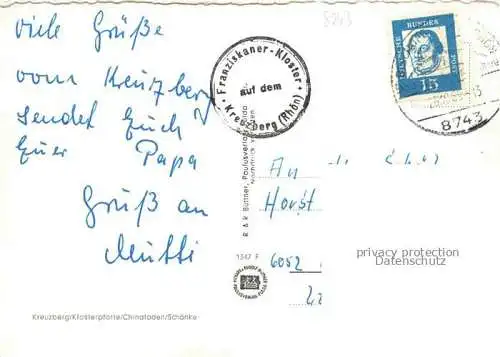 viele Grüße
vom Kreuzberg
sendet Euch
Euer Papa
Gruß an
Mutti
8743
Franziskaner-Kloster
auf dem
Kreuzberg (Rhön)
DEUTSCHE BUNDESPOST
15
8743
An
Horst
6052
R & R Büttner, Paulusverlag, Fulda
1347 F
privacy protection
Datenschutz
Kreuzberg/Klosterpforte/Chinaladen/Schänke